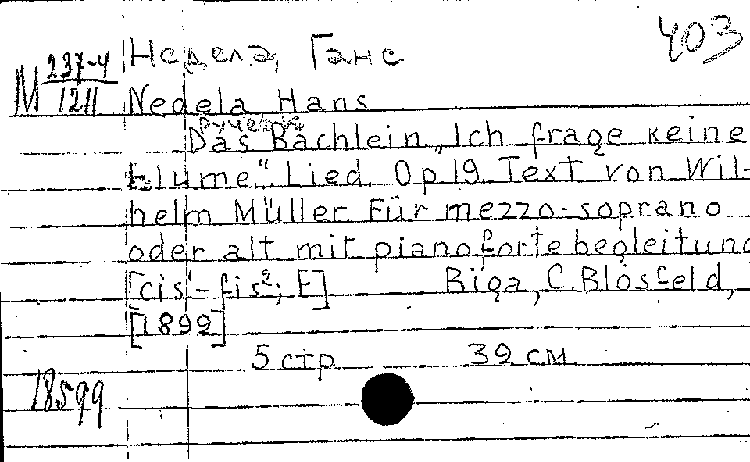 403
Недела, Ганс
М 237-4/1211
Nedela Hans
Ручеек
Das Bächlein „Ich frage keine
Blume“. Lied. Op 19. Text von Wil-
helm Müller Für mezzo-soprano
oder alt mit pianofortebegleitung
[cis¹-fis²; E] Riga, C. Blosfeld,
[1899]
5 стр 39 см
18599